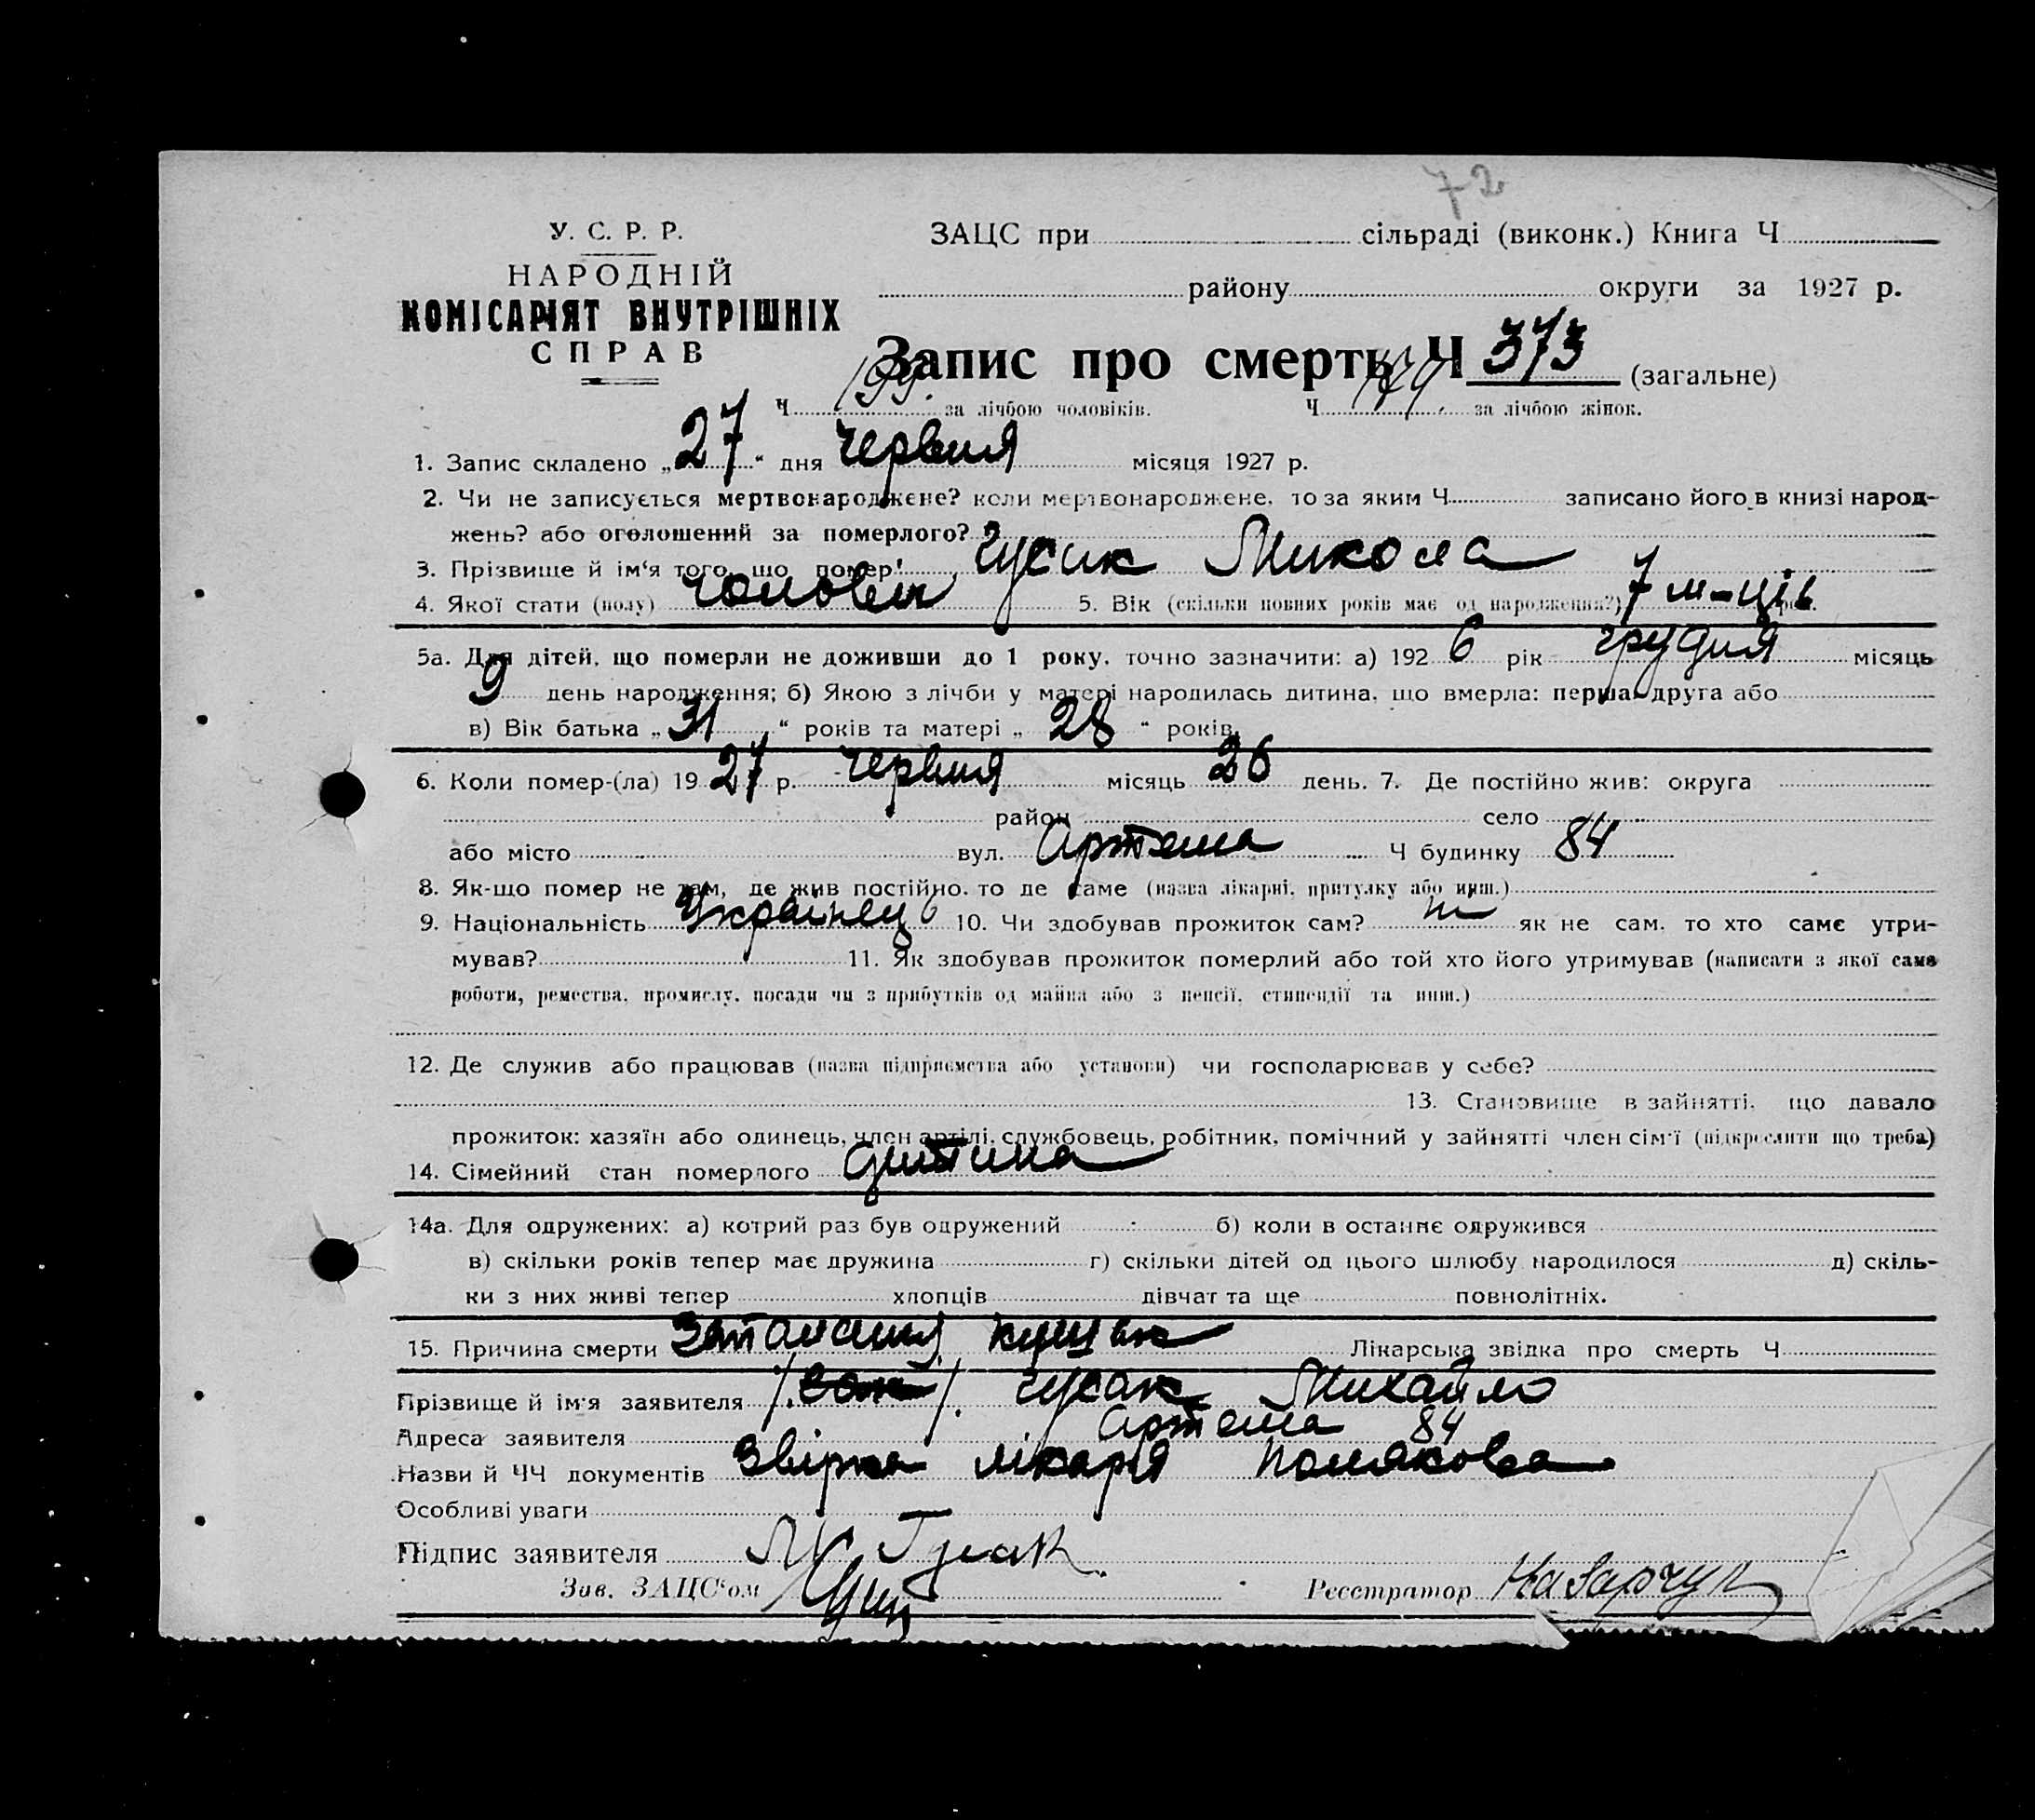 72
У. С. Р. Р.
НАРОДНІЙ
КОМІСАРІЯТ ВНУТРІШНІХ
СПРАВ
ЗАЦС при сільраді (виконк.) Книга Ч
району округи за 1927 р.
Запис про смерть Ч 373 (загальне)
Ч 199. за лічбою чоловіків. Ч 174. за лічбою жінок.
1. Запис складено „27“ дня червня місяця 1927 р.
2. Чи не записується мертвонароджене? коли мертвонароджене, то за яким Ч записано його в книзі народ-
жень? або оголошений за померлого?
3. Прізвище й ім‘я того, що помер: Гусак Микола
4. Якої статі (полу) чоловік 5. Вік (скільки повних років має од народження?) 7 м-ців
5а. Для дітей, що померли не доживши до 1 року, точно зазначити: а) 1926 рік грудня місяць
9 день народження; б) Якою з лічби у матері народилась дитина, що вмерла: перша, друга або
в) Вік батька „31“ років та матері „28“ років.
6. Коли помер-(ла) 1927 р. червня місяць 26 день. 7. Де постійно жив: округа
район село
або місто вул. Артема Ч будинку 84
8. Як-що помер не там, де жив постійно, то де саме (назва лікарні, притулку або инш.)
9. Національність Українець 10. Чи здобував прожиток сам? ні як не сам, то хто саме утри-
мував? 11. Як здобував прожиток померлий або той хто його утримував (написати з якої саме
роботи, ремества, промислу, посади чи з прибутків од майна або з пенсії, стипендії та инш.)
12. Де служив або працював (назва підприємства або установи) чи господарював у себе?
13. Становище в зайнятті, що давало
прожиток: хазяїн або одинець, член артілі, службовець, робітник, помічний у зайнятті член сім‘ї (підкреслити що треба)
14. Сімейний стан померлого дитина
14а. Для одружених: а) котрий раз був одружений б) коли в останнє одружився
в) скільки років тепер має дружина г) скільки дітей од цього шлюбу народилося д) скіль-
ки з них живі тепер хлопців дівчат та ще повнолітніх.
15. Причина смерти Запалення кишок Лікарська звідка про смерть Ч
Прізвище й ім‘я заявителя Гусак Михайло
Адреса заявителя Артема 84
Назви й ЧЧ документів Звірка лікаря Полякова
Особливі уваги
Підпис заявителя М Гусак
Зав. ЗАЦС‘ом Реєстратор Назарчук